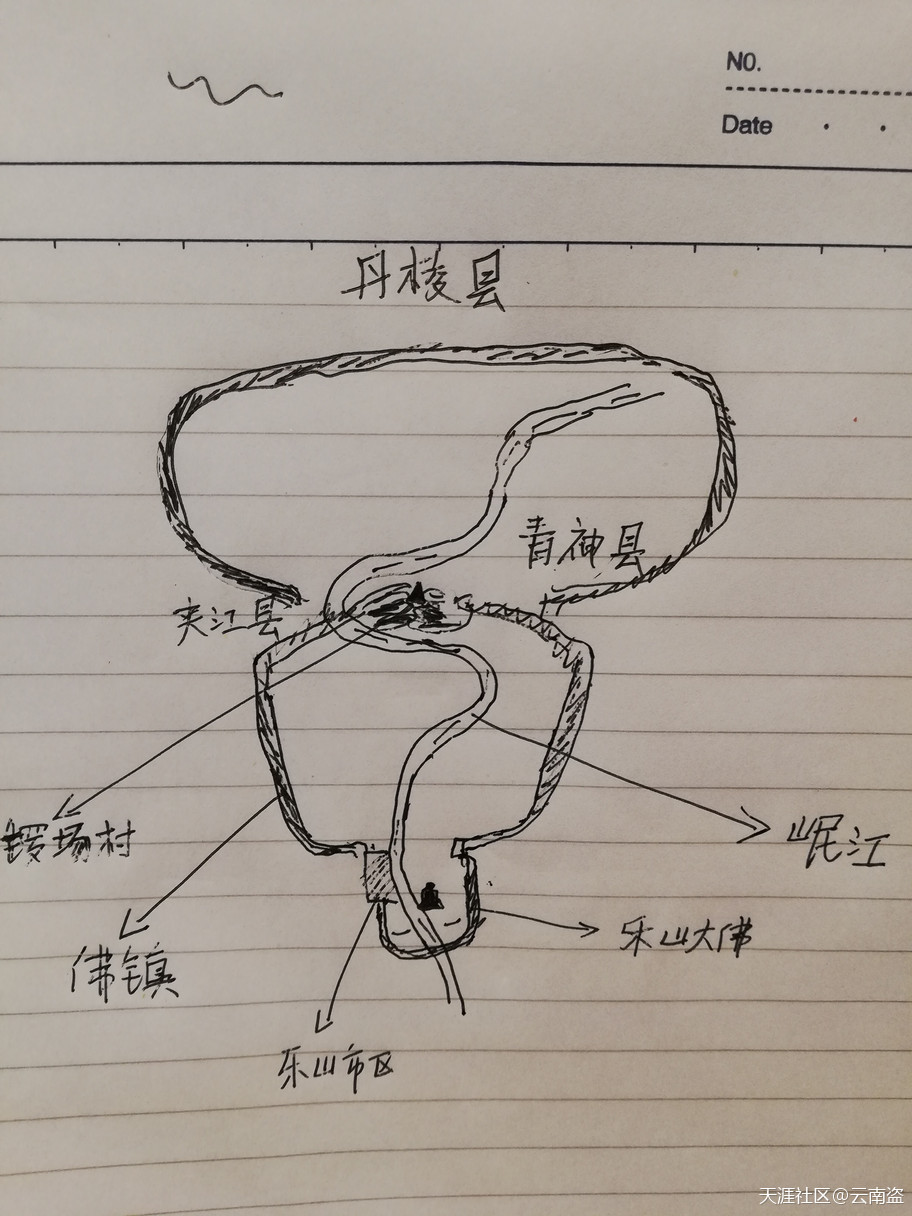 NO.
Date
丹棱县
青神县
夹江县
场村
岷江
佛镇
乐山大佛
乐山市区
天涯社区@云南盗